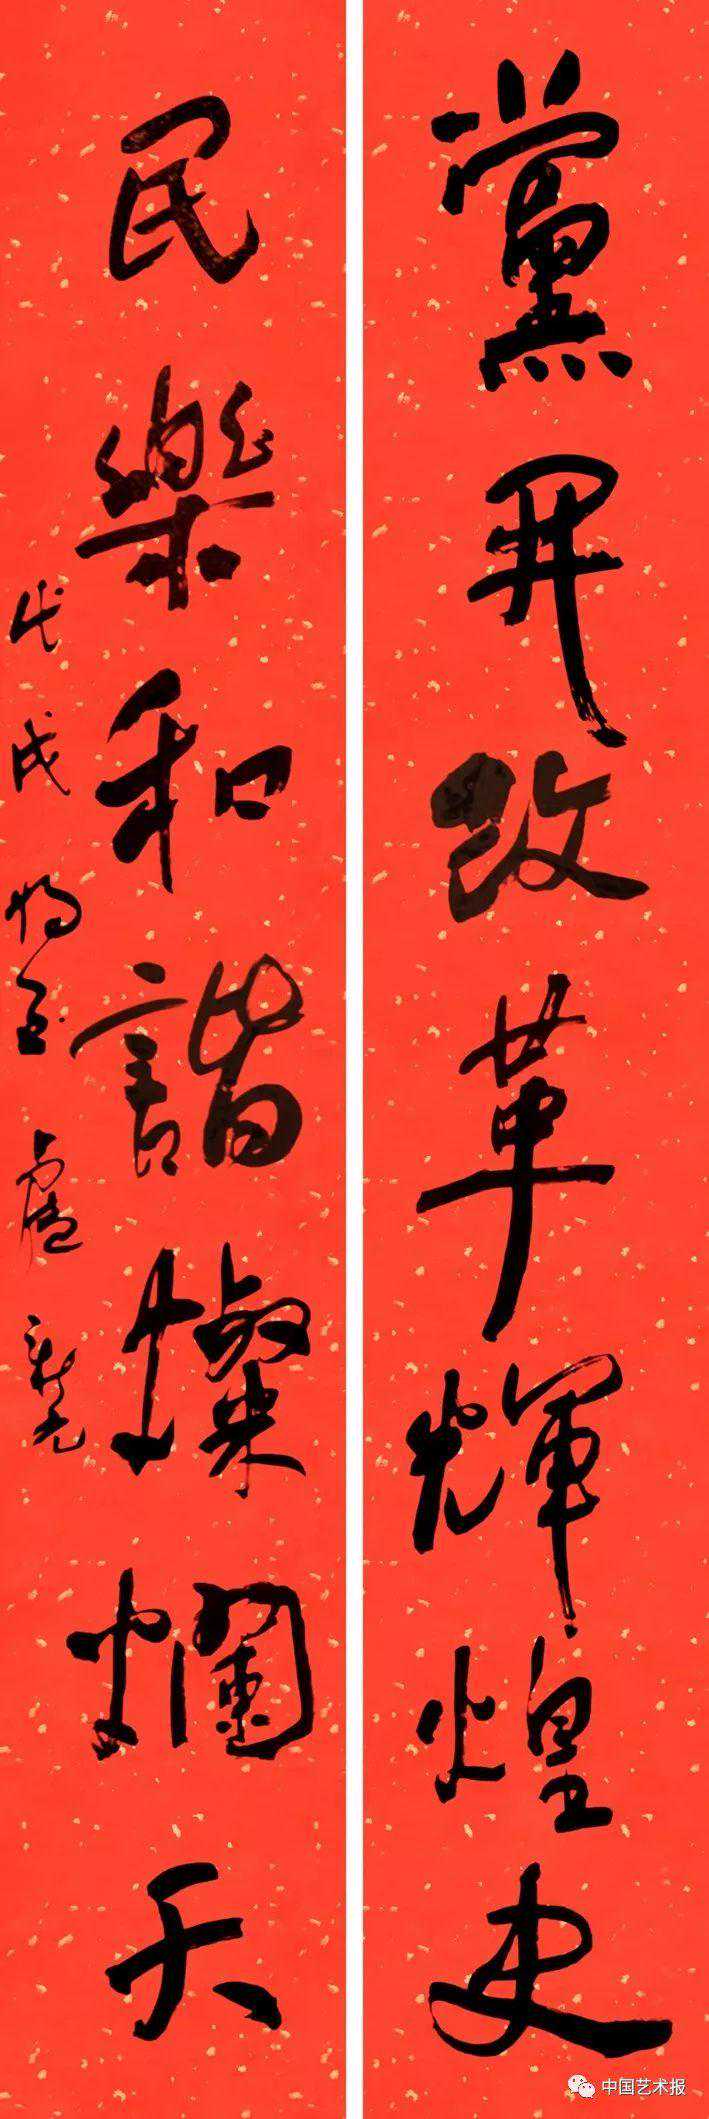 黨開改革輝煌史
民樂和諧燦爛天
戊戌
盧
中国艺术报